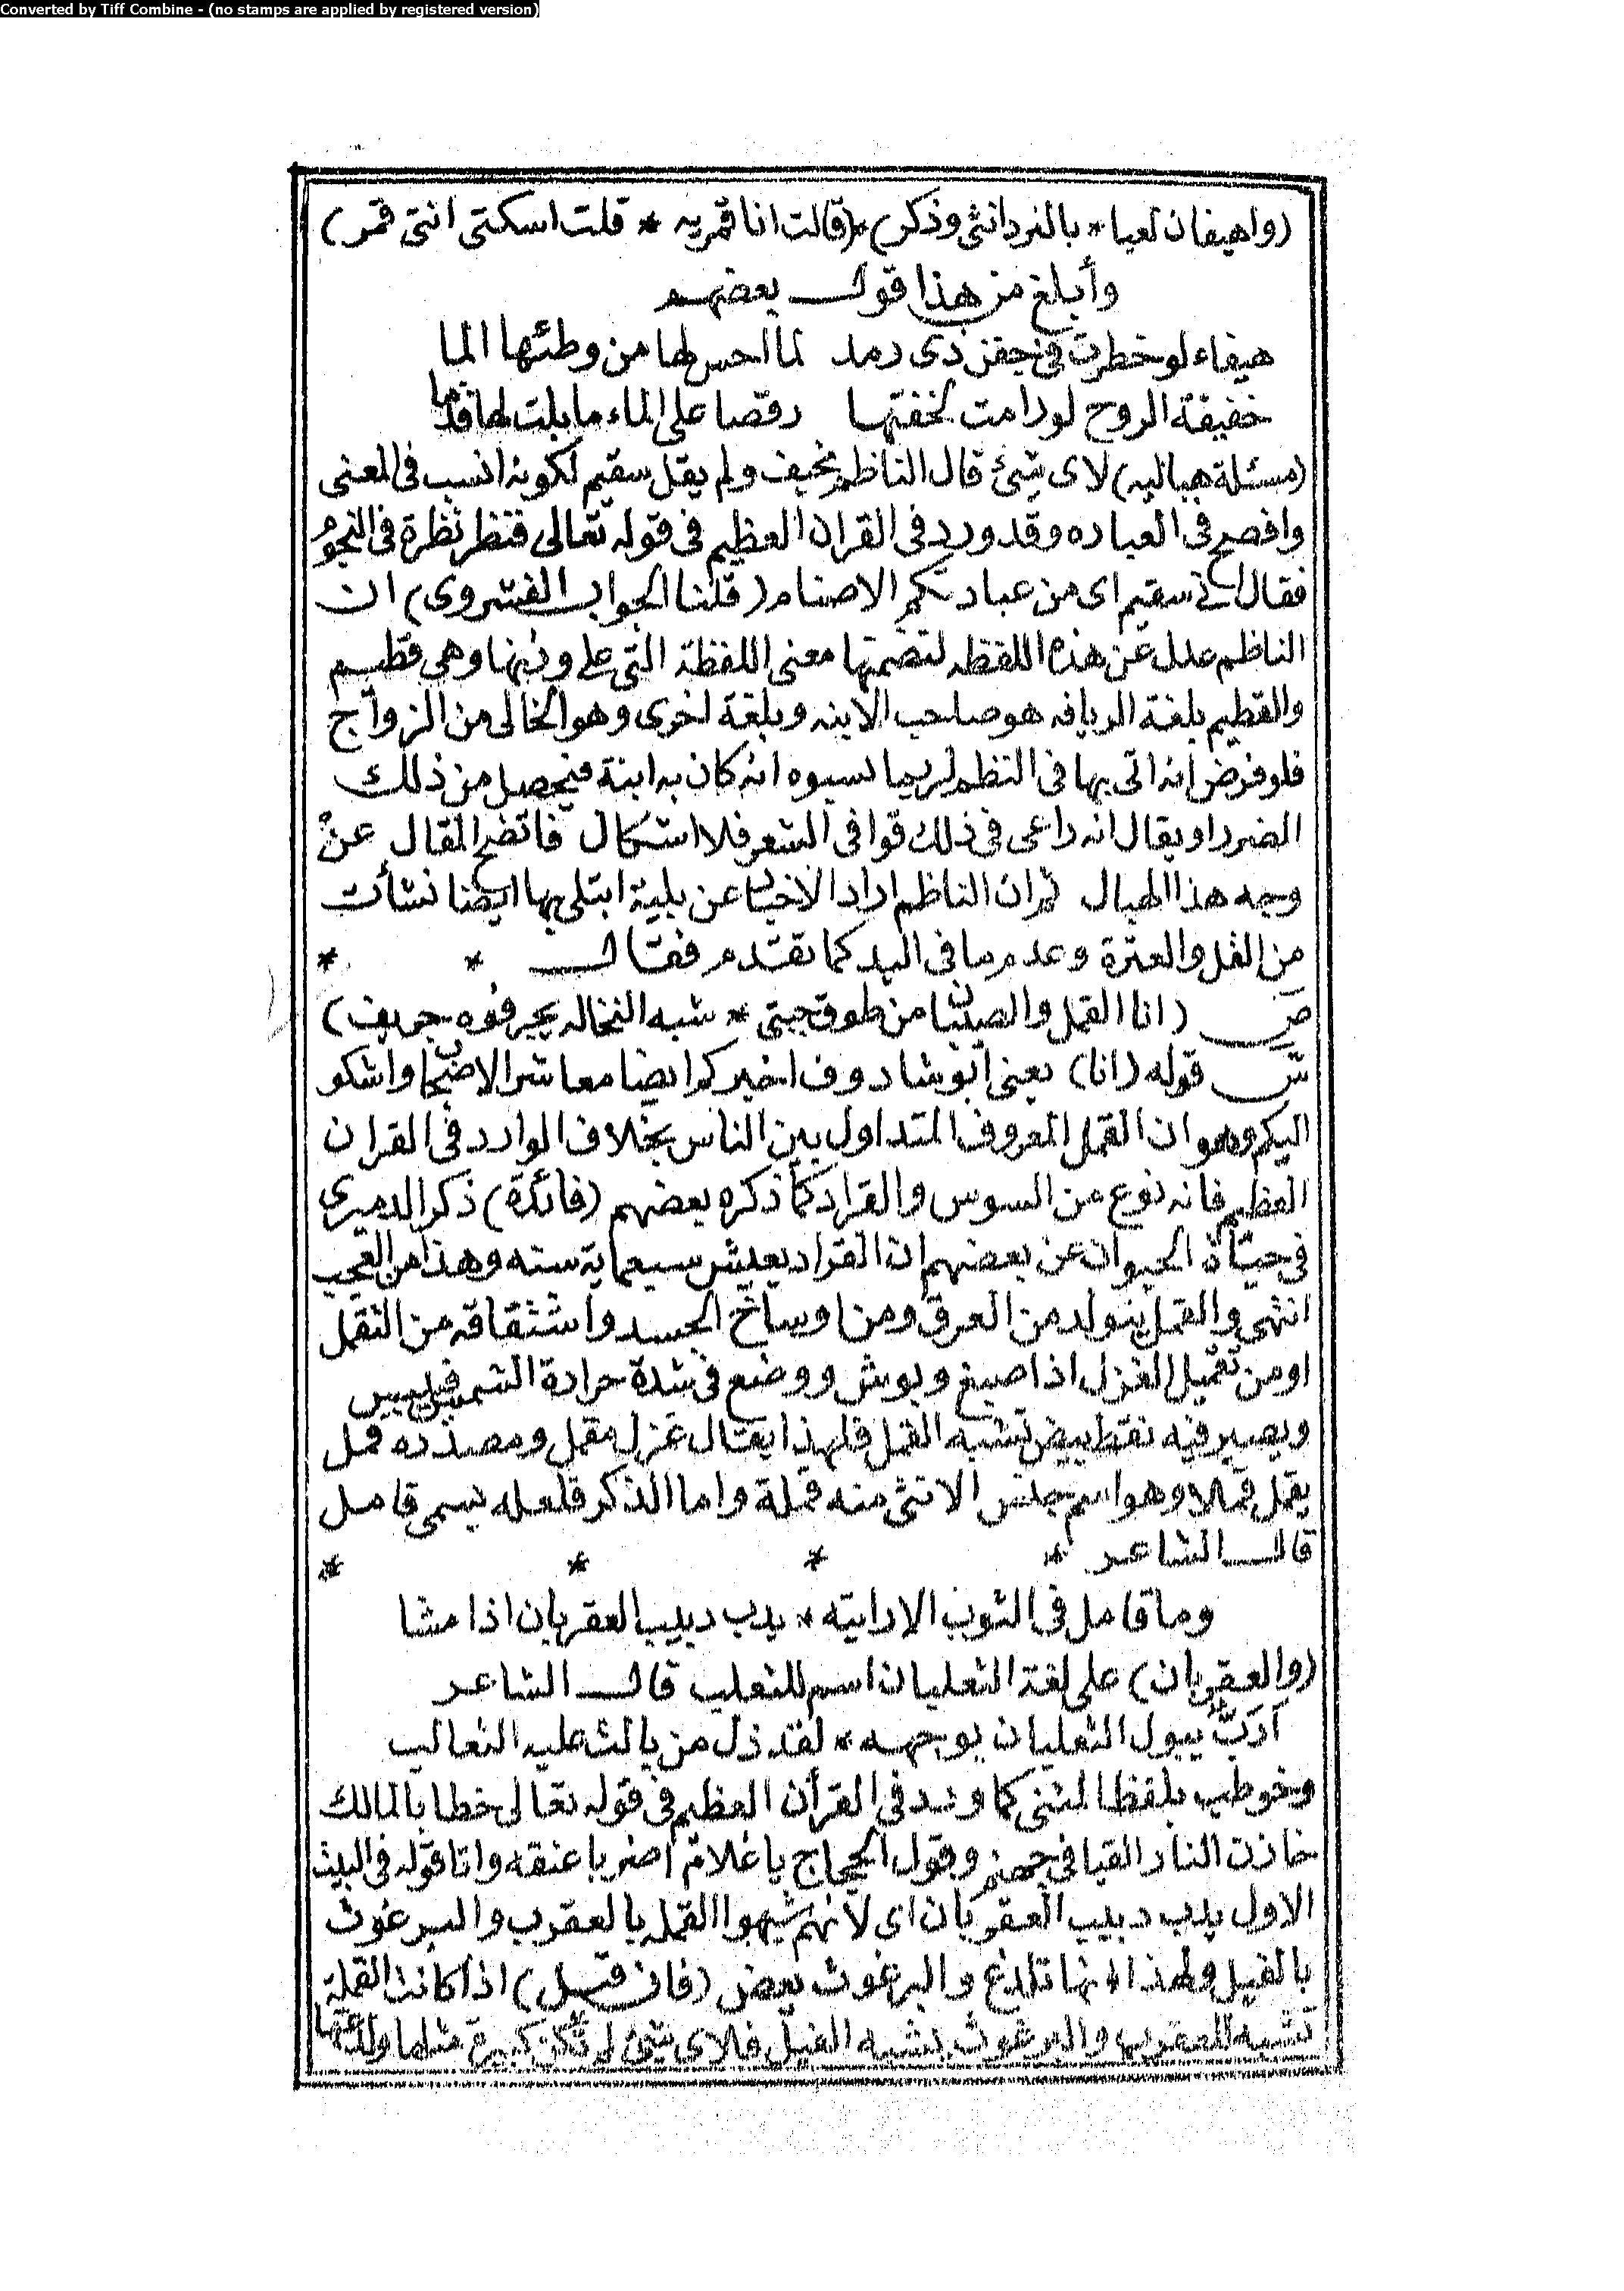 Converted by Tiff Combine - (no stamps are applied by registered version)
(واهيفان لعبا * بالنرد انثى وذكر) * (قالت انا قمريه * قلت اسكتى انتى قمر)
وأبلغ من هذا قول بعضهم
هيفاء لو خطرت في جفن ذى رمد لما احس لها من وطئها الما
خفيفة الروح لو رامت لخفتها رقصا على الماء ما بلت لها قدما
(مسئلة هباليه) لاى شئ قال الناظم نحيف ولم يقل سقيم لكونه انسب فى المعنى
وافصح فى العباره وقد ورد فى القران العظيم فى قوله تعالى فنظر نظرة فى النجوم
فقال انى سقيم اى من عبادتكم الاصنام (قلنا الجواب الفشروى) ان
الناظم عدل عن هذه اللفظه لتضمنها معنى اللفظة التى على وزنها وهى قطيم
والقطيم بلغة الريافه هو صاحب الابنه وبلغة اخرى وهو الخالى من الزواج
فلو فرض انه اتى بها فى النظم لربما نسبوه انه كان به ابنة فيحصل من ذلك
الضرر او يقال انه راعى فى ذلك قوافى الشعر فلا اشكال فاتضح المقال عن
وجه هذا الهبال ثم ان الناظم اراد الاخبار عن بلية ابتلى بها ايضا نشأت
من القل والعترة وعدم ما فى اليد كما تقدم فقال * *
ص (انا القمل والصيبان من طوق جبتى * شبه النخاله يجرفوه جريف)
ش قوله (انا) يعنى أبو شادوف اخبركم ايضا معاشر الاصحاب واشكو
اليكم وهو ان القمل المعروف المتداول بين الناس بخلاف الوارد فى القران
العظيم فانه نوع من السوس والقراد كما ذكره بعضهم (فائدة) ذكر الدميرى
فى حيٰاة الحيوان عن بعضهم ان القراد يعيش سبعماية سنه وهذا من العجب
انتهى والقمل يتولد من العرق ومن اوساخ الجسد واشتقاقه من التقمل
او من تقميل الغزل اذا صبغ وبوش ووضع فى شدة حرارة الشمس فييبس
ويصير فيه نقط بيض تشبه القمل فلهذا يقال غزل مقمل ومصدره قمل
يقمل قملا وهو اسم جنس الانثى منه قملة واما الذكر فلعله يسمى قامل
قال الشاعر * * * *
وما قامل فى الثوب الا رايته * يدب دبيب العقربان اذا مشا
(والعقربان) على لغة الثعلبان اسم للثعلب قال الشاعر
أربٌّ يبول الثعلبان بوجهه * لقد ذل من بالت عليه الثعالب
وخوطب بلفظ المثنى كما ورد فى القرآن العظيم فى قوله تعالى خطابا لمالك
خازن النار القيا فى جهنم وقول الحجاج يا غلام اضربا عنقه واما قوله فى البيت
الاول يدب دبيب العقربان اى لأنهم شبهوا القمله بالعقرب والبرغوث
بالفيل ولهذا انها تلدغ والبرغوث يعض (فان قيل) اذا كانت القملة
تشبه للعقرب والبرغوث يشبه الفيل فلاى شئ لم تكن كبيرة مثلها ولدغتها